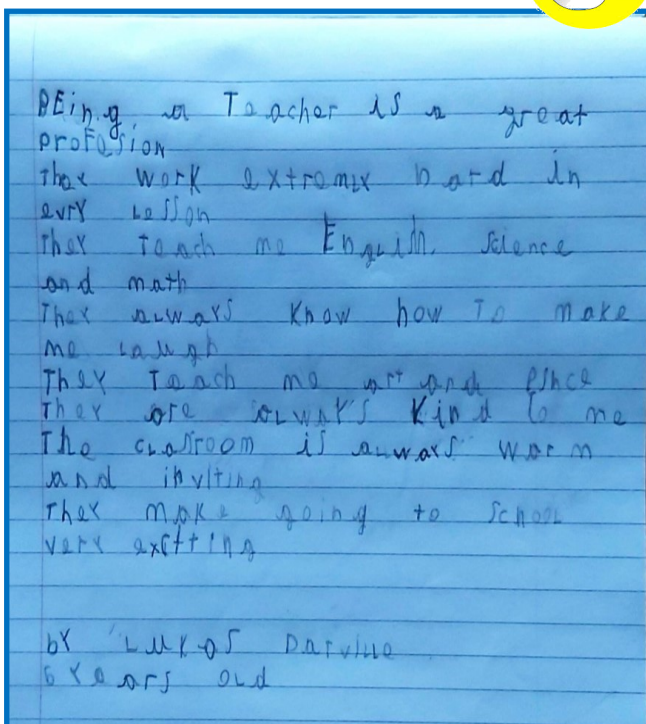 BEing a Teacher is a great
profesion
They work extremly hard in
evry Lesson
They Teach me English science
and math
They always know how To make
me Laugh
They Teach me art and
They are always kind to me
The classroom is always warm
and inviting
They make going to school
very exitting
by Lukas
6 years old